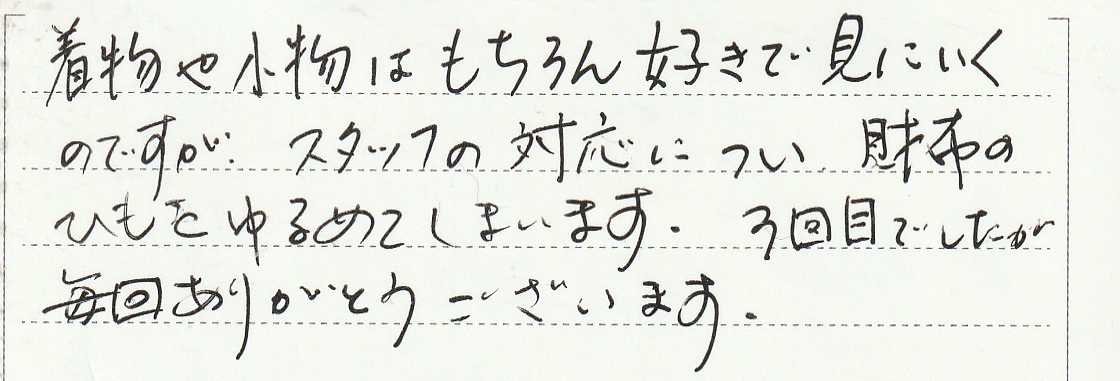 着物や小物はもちろん好きで見にいく
のですが、スタッフの対応につい、財布の
ひもをゆるめてしまいます。 3回目でしたが
毎回ありがとうございます。